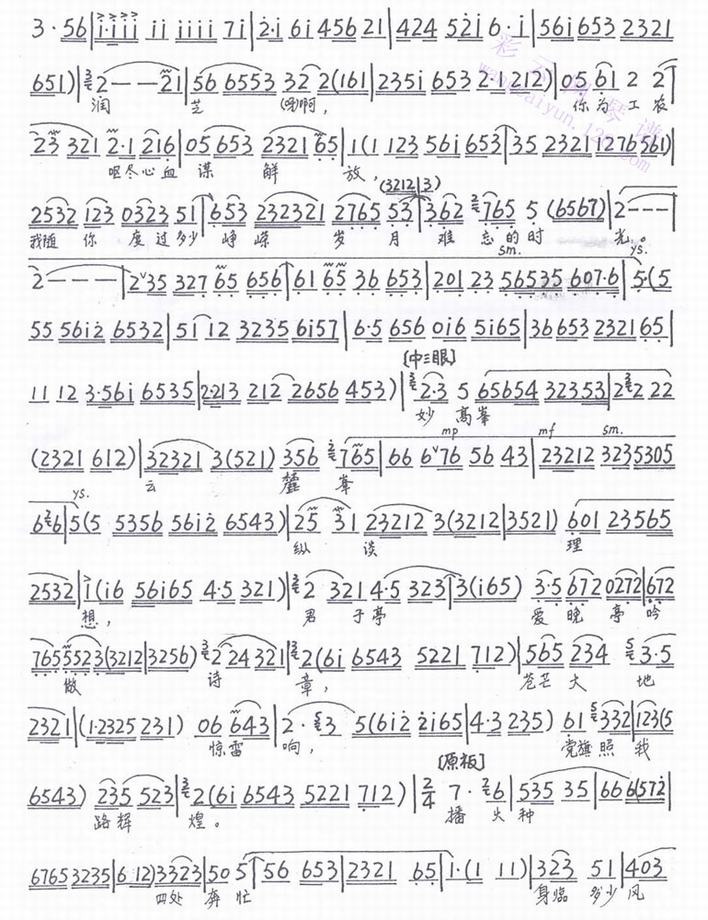 3·56|i·iii ii iiii 7i|2·i 6i 456 21|424 52i 6·i|56i 653 2321
651)|2——21|56 6553 32 2(161|235i 653 2·1 212)|05 61 2 2
润 芝 (呣啊, 你为工农
23 321 2·1 216|05 653 2321 65|1(1 123 56i 653|35 2321 1276 561)
呕尽心血 谋 解 放,
(3212|3)
2532 123 0323 51|653 232321 2765 53|362 765 5 (6567)|2———
我随 你 度过多少 峥嵘 岁 月 难 忘的时 光。
sm. ys.
2———|2 35 327 65 656|61 65 36 653|201 23 56535 607·6|5·(5
55 56i2 6532|51 12 3235 6i57|6·5 656 0i6 5i65|36 653 2321 65|
[中三眼]
11 12 3·56i 6535|2·213 212 2656 453)|2·3 5 65654 32353|2 2 22
妙 高峯
mp mf sm.
(2321 612)|32321 3(521) 356 765|66 6 76 56 43|23212 3235305
云 麓 峯
ys.
6 6|5(5 5356 56i2 6543)|25 31 23212 3(3212|3521) 601 23565
纵 谈 理
2532|i(i6 56i65 4·5 321)|2 321 4·5 323|3(i65) 3·5 672 0272|672
想, 君 子亭 爱 晚 亭 吟
765 5523(3212|3256) 2 24321|2(6i 6543 5221 712)|565 234 3·5
做 诗 章, 苍茫 大 地
2321|(1·2325 231) 06 643|2· 3 5(6i2 2i65|4·3 235) 61 332|123(5
惊雷 响, 党旗照 我
[原板]
6543) 235 523|2(6i 6543 5221 712)|2/4 7· 6|535 35|66 6(572
路辉 煌。 播 火 种
6765 3235|6·12)3323|50 5|56 653|2321 65|1·(1 11)|323 51|403
四处 奔 忙 身临 多少 风